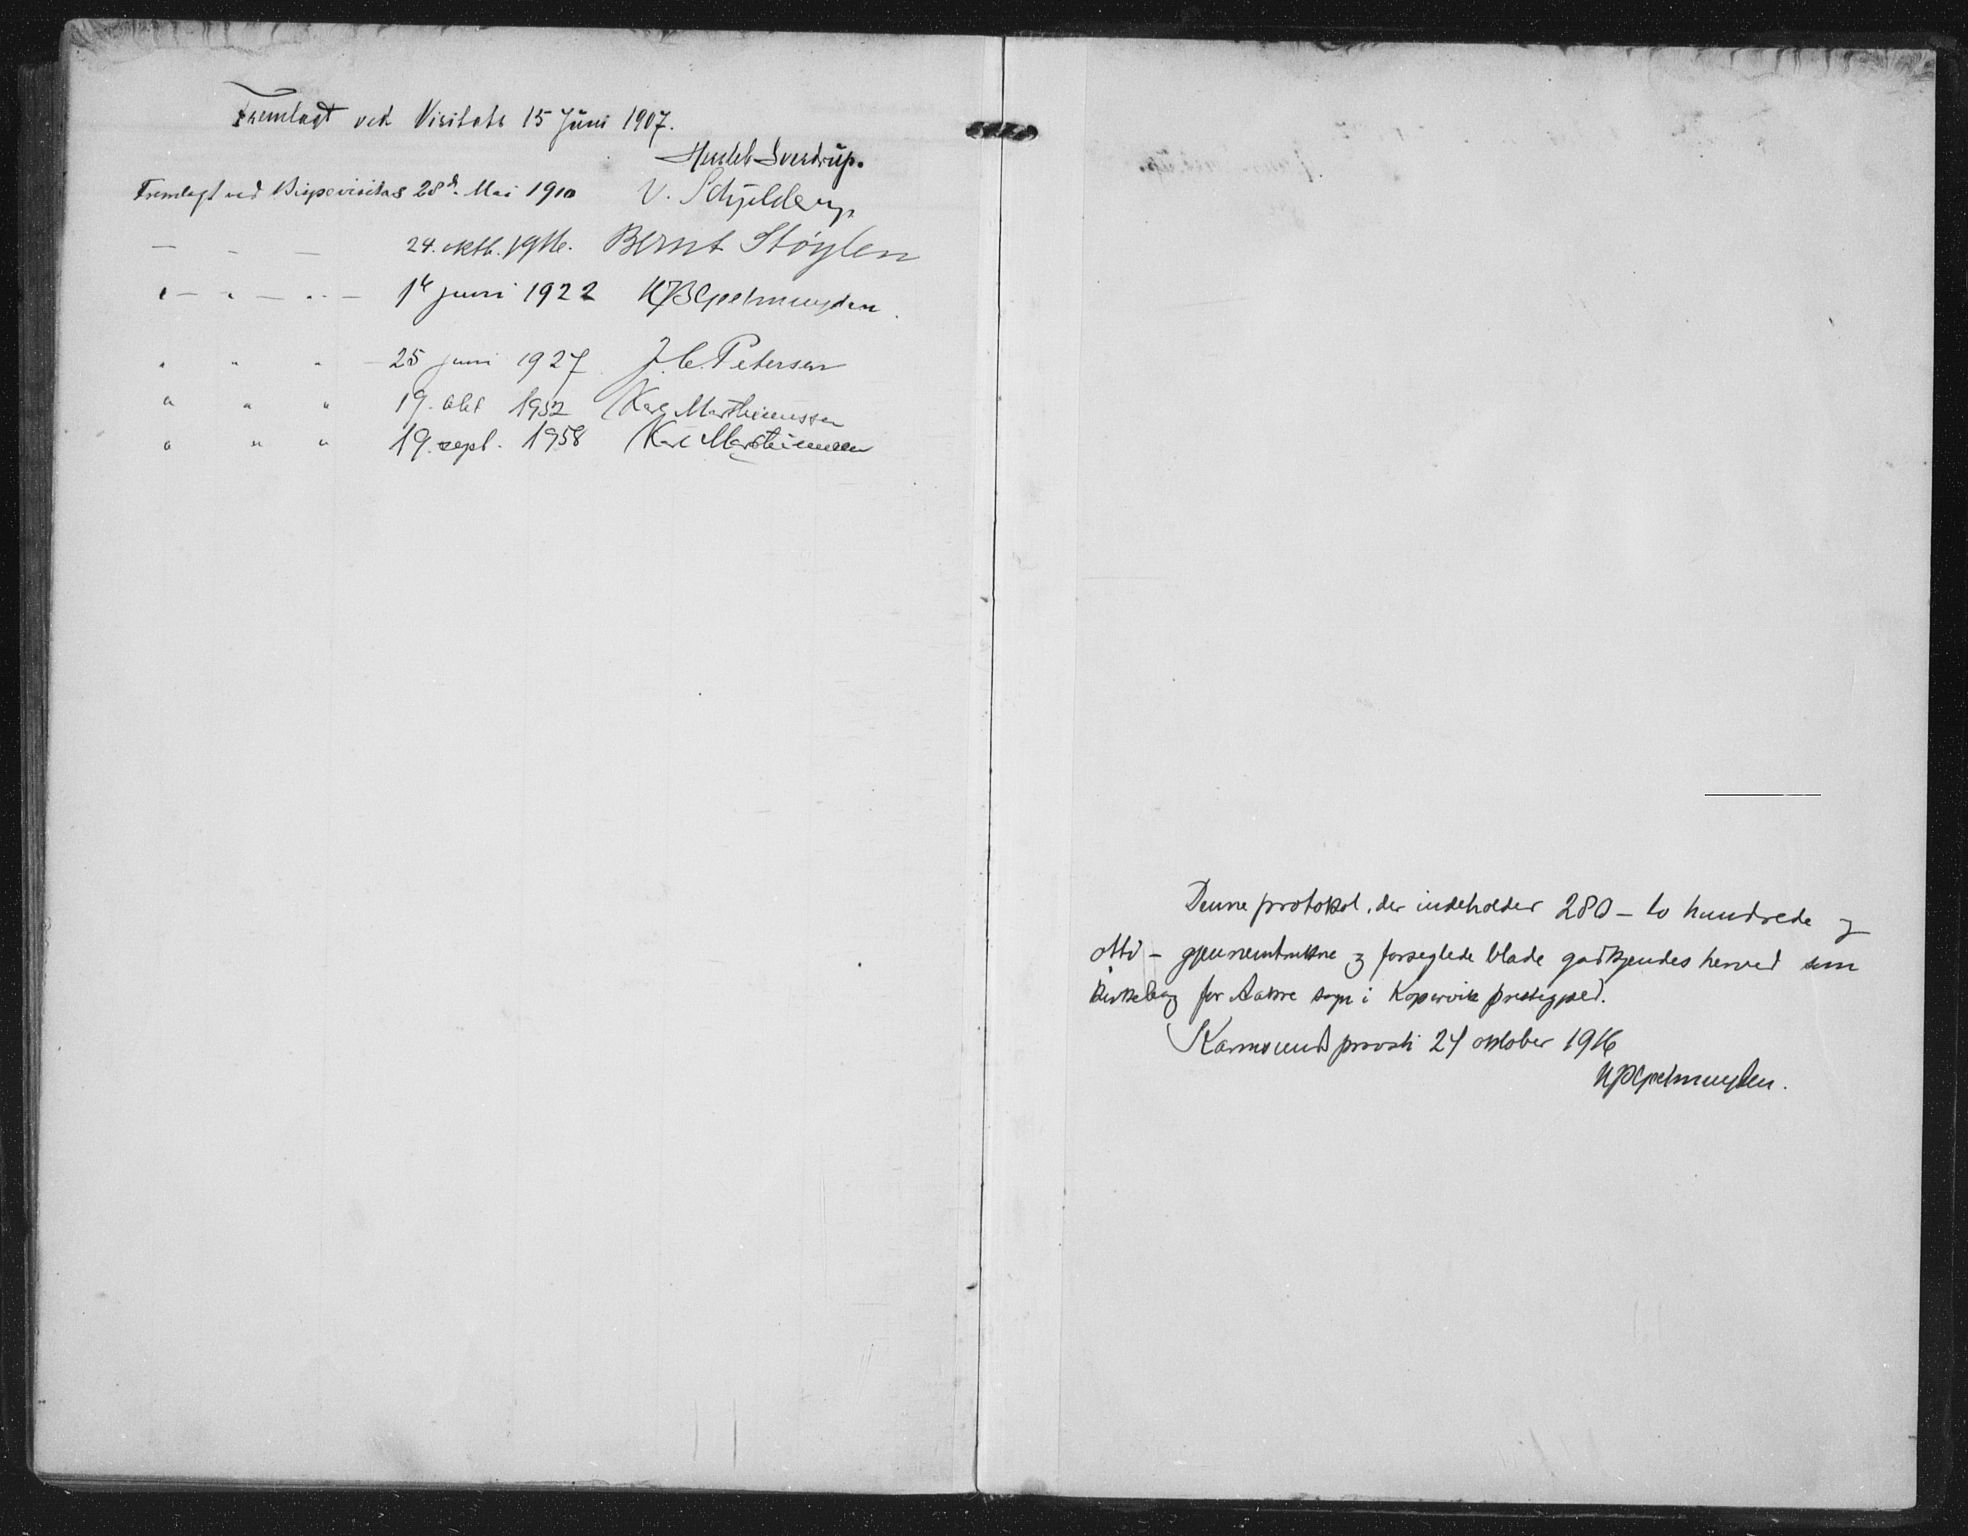 Fremlagt ved Visitats 15 Juni 1907.
Sverdrup.
Fremlagt ved Bispevisitas 28d. Mai 1910 V. Schjelderup
— - — 24. oktb. 1916. Bernt Støylen
" — " — " — 1te juni 1922
" " " — 25 juni 1927 J. C. Petersen
" " " 19. okt 1952 Karl Marthinussen
" " " 19. sept. 1958 Karl Marthinussen
Denne protokol, der indeholder 280 – to hundrede og
otti – gjennemtrukne og forseglede blade godkjendes herved som
kirkebog for Aakre sogn i Kopervik prestegjæld.
Karmsund provsti 24 oktober 1916